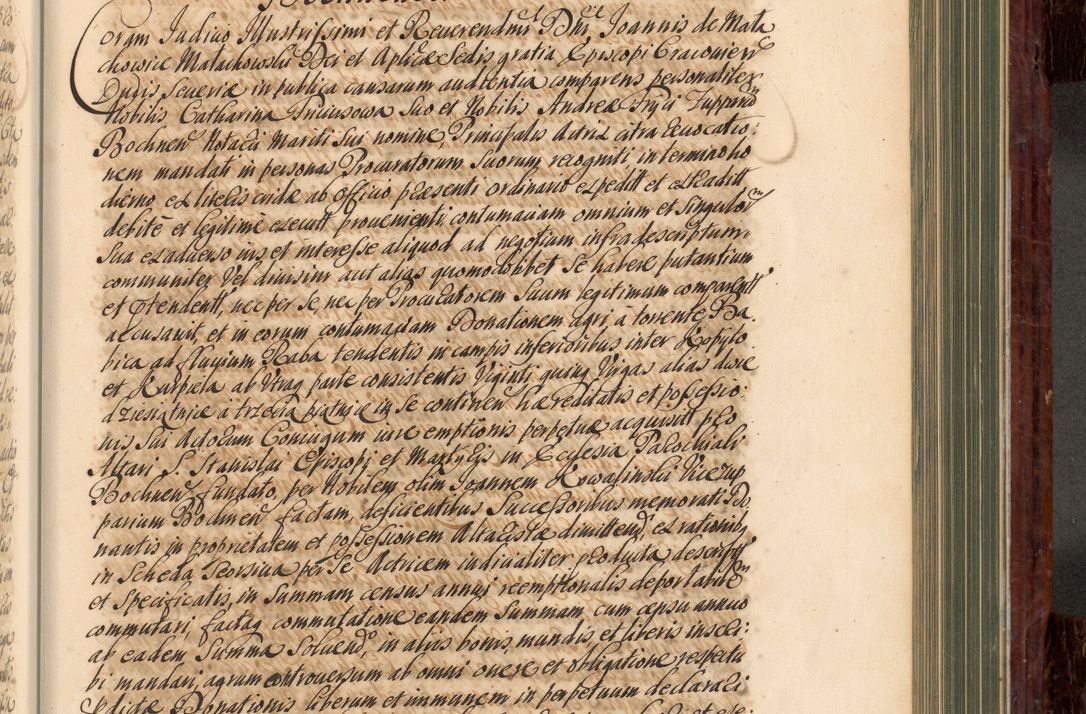 Coram Judicio Illustrissimi et Reverendmi Dni Joannis de Mała
chowice Małachowski Dei et Aplicæ Sedis gratia Episcopi Cracovien
Ducis Severiæ in publica causarum audientia comparens personaliter
Nobilis Catharina Friciusowa Suo et Nobilis Andreæ Fryci Zuppæ
Bochnen Notarii Mariti Sui nomine, Principalis Actrix citra Revocatio:
nem mandati in personas Procuratorum Suorum recogniti, in termino ho
dierno ex literis cridæ ab Officio præsenti ordinario expedit et extradit
debitè et legitimè execut proveniente, contumaciam omnium et Singulor
Sua ex adverso ius, et interesse aliquod ad negotium infradescriptum
communiter Vel divisim aut alias quomodolibet Se habere putantium
et prtendent, nec per Se, nec per Procuratorem Suum legitimum comparent
accusavit, et in eorum contumaciam Donationem agri, a torrente Ba
bica ad fluvium Raba tendentis in campis inferioribus inter Kopyto
et Kurpiela ab utraq parte consistentis Viginti quinq Virgas alias dwæ
dziesiątnice a trzecią pratnicę in Se continen hæreditatis et possessio:
nis Sui Actorum Coniugum iure emptionis perpetuæ acquisitt pro
Altari S. Stanislai Episcopi et Martyris in Ecclesia Parochiali
Bochnen fundato, per Nobilem olim Joannem Kowalinski Vicezup
parium Bochnen factam, deficientibus Successoribus memorati Do
nantis in proprietatem et possessionem Altaristæ dimittend, ex rationibq
in Scheda Seorsiva per Se Actricem iudicialiter producta descript
et Specificatis, in Summam census annui reemptionalis deportabilem
commutari, factaq commutatione eandem Summam, cum censu annuo
ab eadem Summa Solvendo, in aliis bonis mundis et liberis inscri:
bi mandari, agrum controversum ab omni onere et obligatione respectu
prædictæ Donationis liberum et immunem in perpetuum declarari